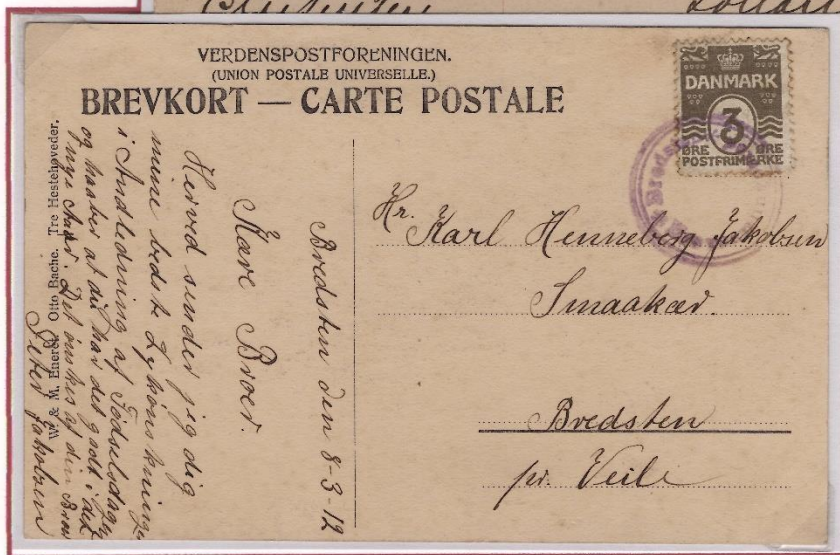 VERDENSPOSTFORENINGEN.
(UNION POSTALE UNIVERSELLE.)
BREVKORT — CARTE POSTALE
DANMARK
3
ØRE ØRE
POSTFRIMÆRKE
Bredsten
Hr. Karl Henneberg Jakobsen
Smaakær.
Bredsten
pr. Veile
Bredsten den 8-3-12
Kære Broer.
Herved sender jeg dig
mine bedste Lykønskninger
i Andledning af Fødselsdagen
og haaber at du har det godt i det
nye Aar. Det ønskes af din Broer
Peter Jakobsen
W. & M. Eneret. Otto Bache. Tre Hestehoveder.